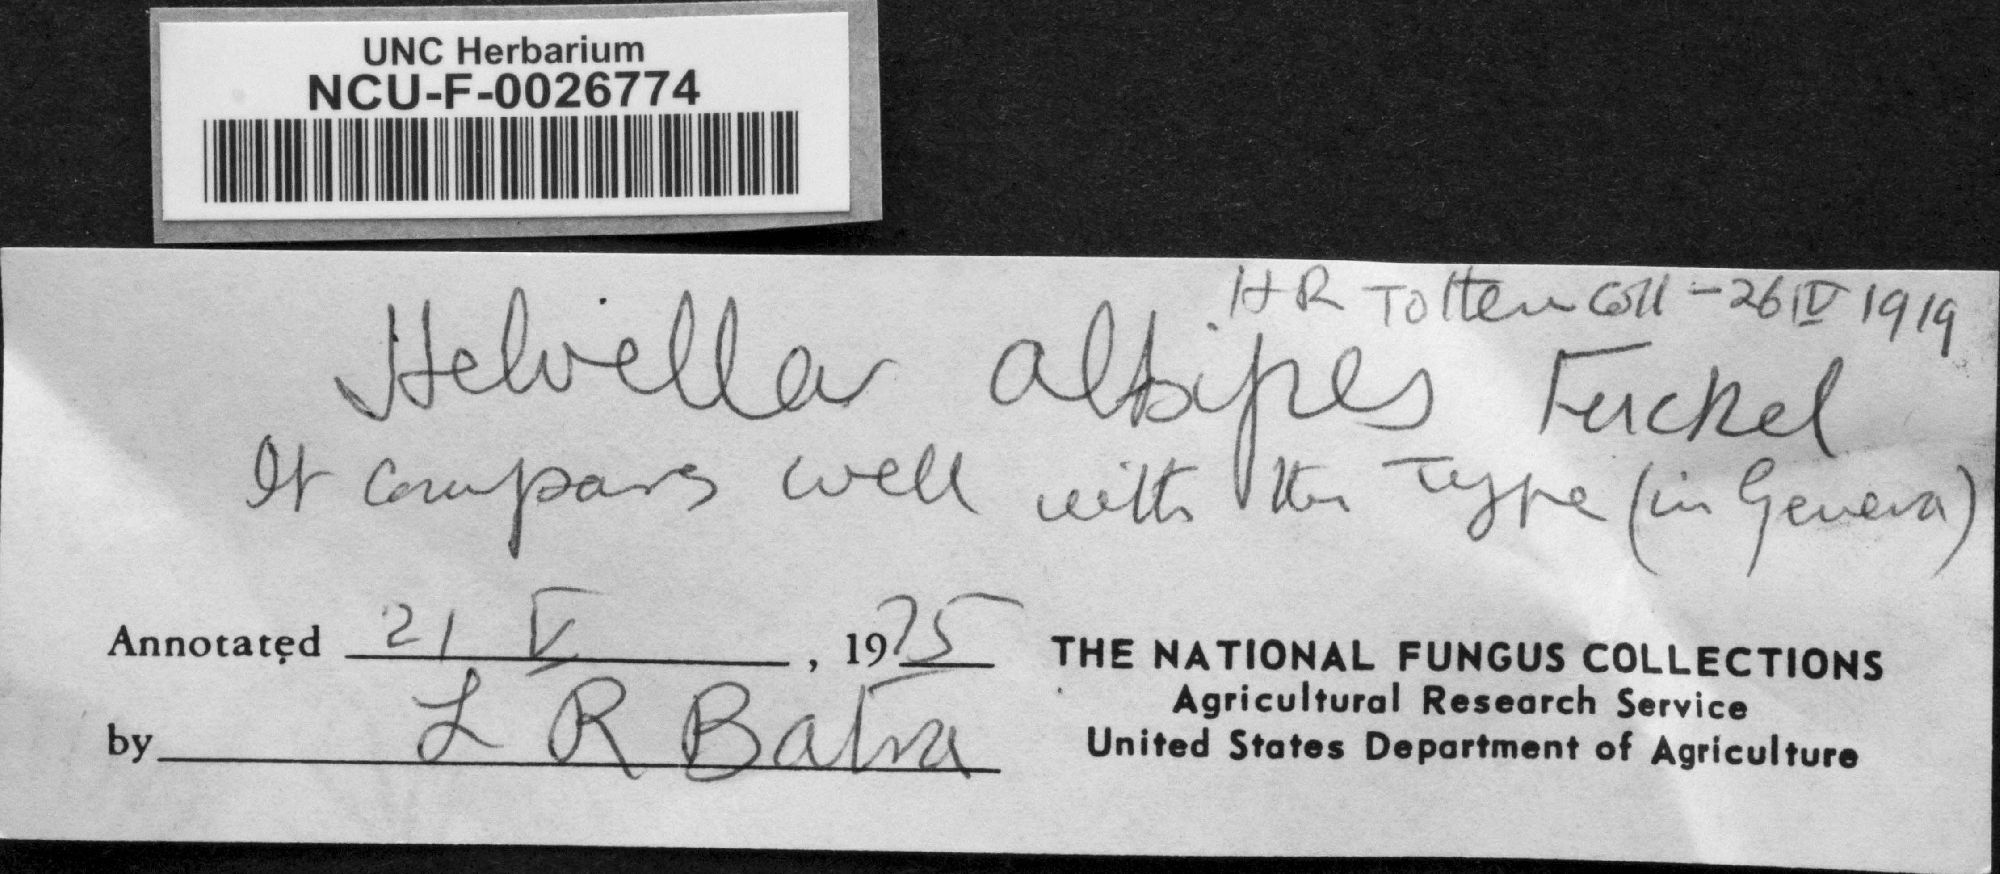 UNC Herbarium
NCU-F-0026774
HR Totten Coll - 26 IV 1919
Helvella albipes Fuckel
It compares well with the Type (in Geneva)
Annotated 21 V, 1975
by L R Batra
THE NATIONAL FUNGUS COLLECTIONS
Agricultural Research Service
United States Department of Agriculture